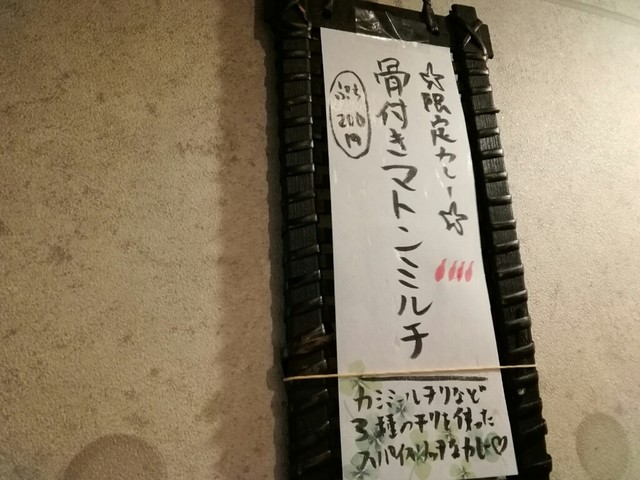 ☆限定カレー☆
骨付きマトンミルチ
ぷち
200
円
カシミールチリなど
3種のチリを使った
スパイスリッチなカレー♡